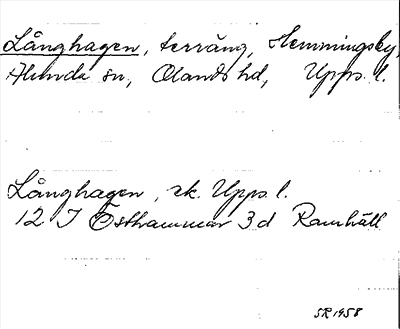 Långhagen, terräng, Hemmingsby,
Alunda sn, Olands hd, Upps. l.
Långhagen, ek. Upps. l.
12 I Östhammar 3d Ramhäll
SR 1958